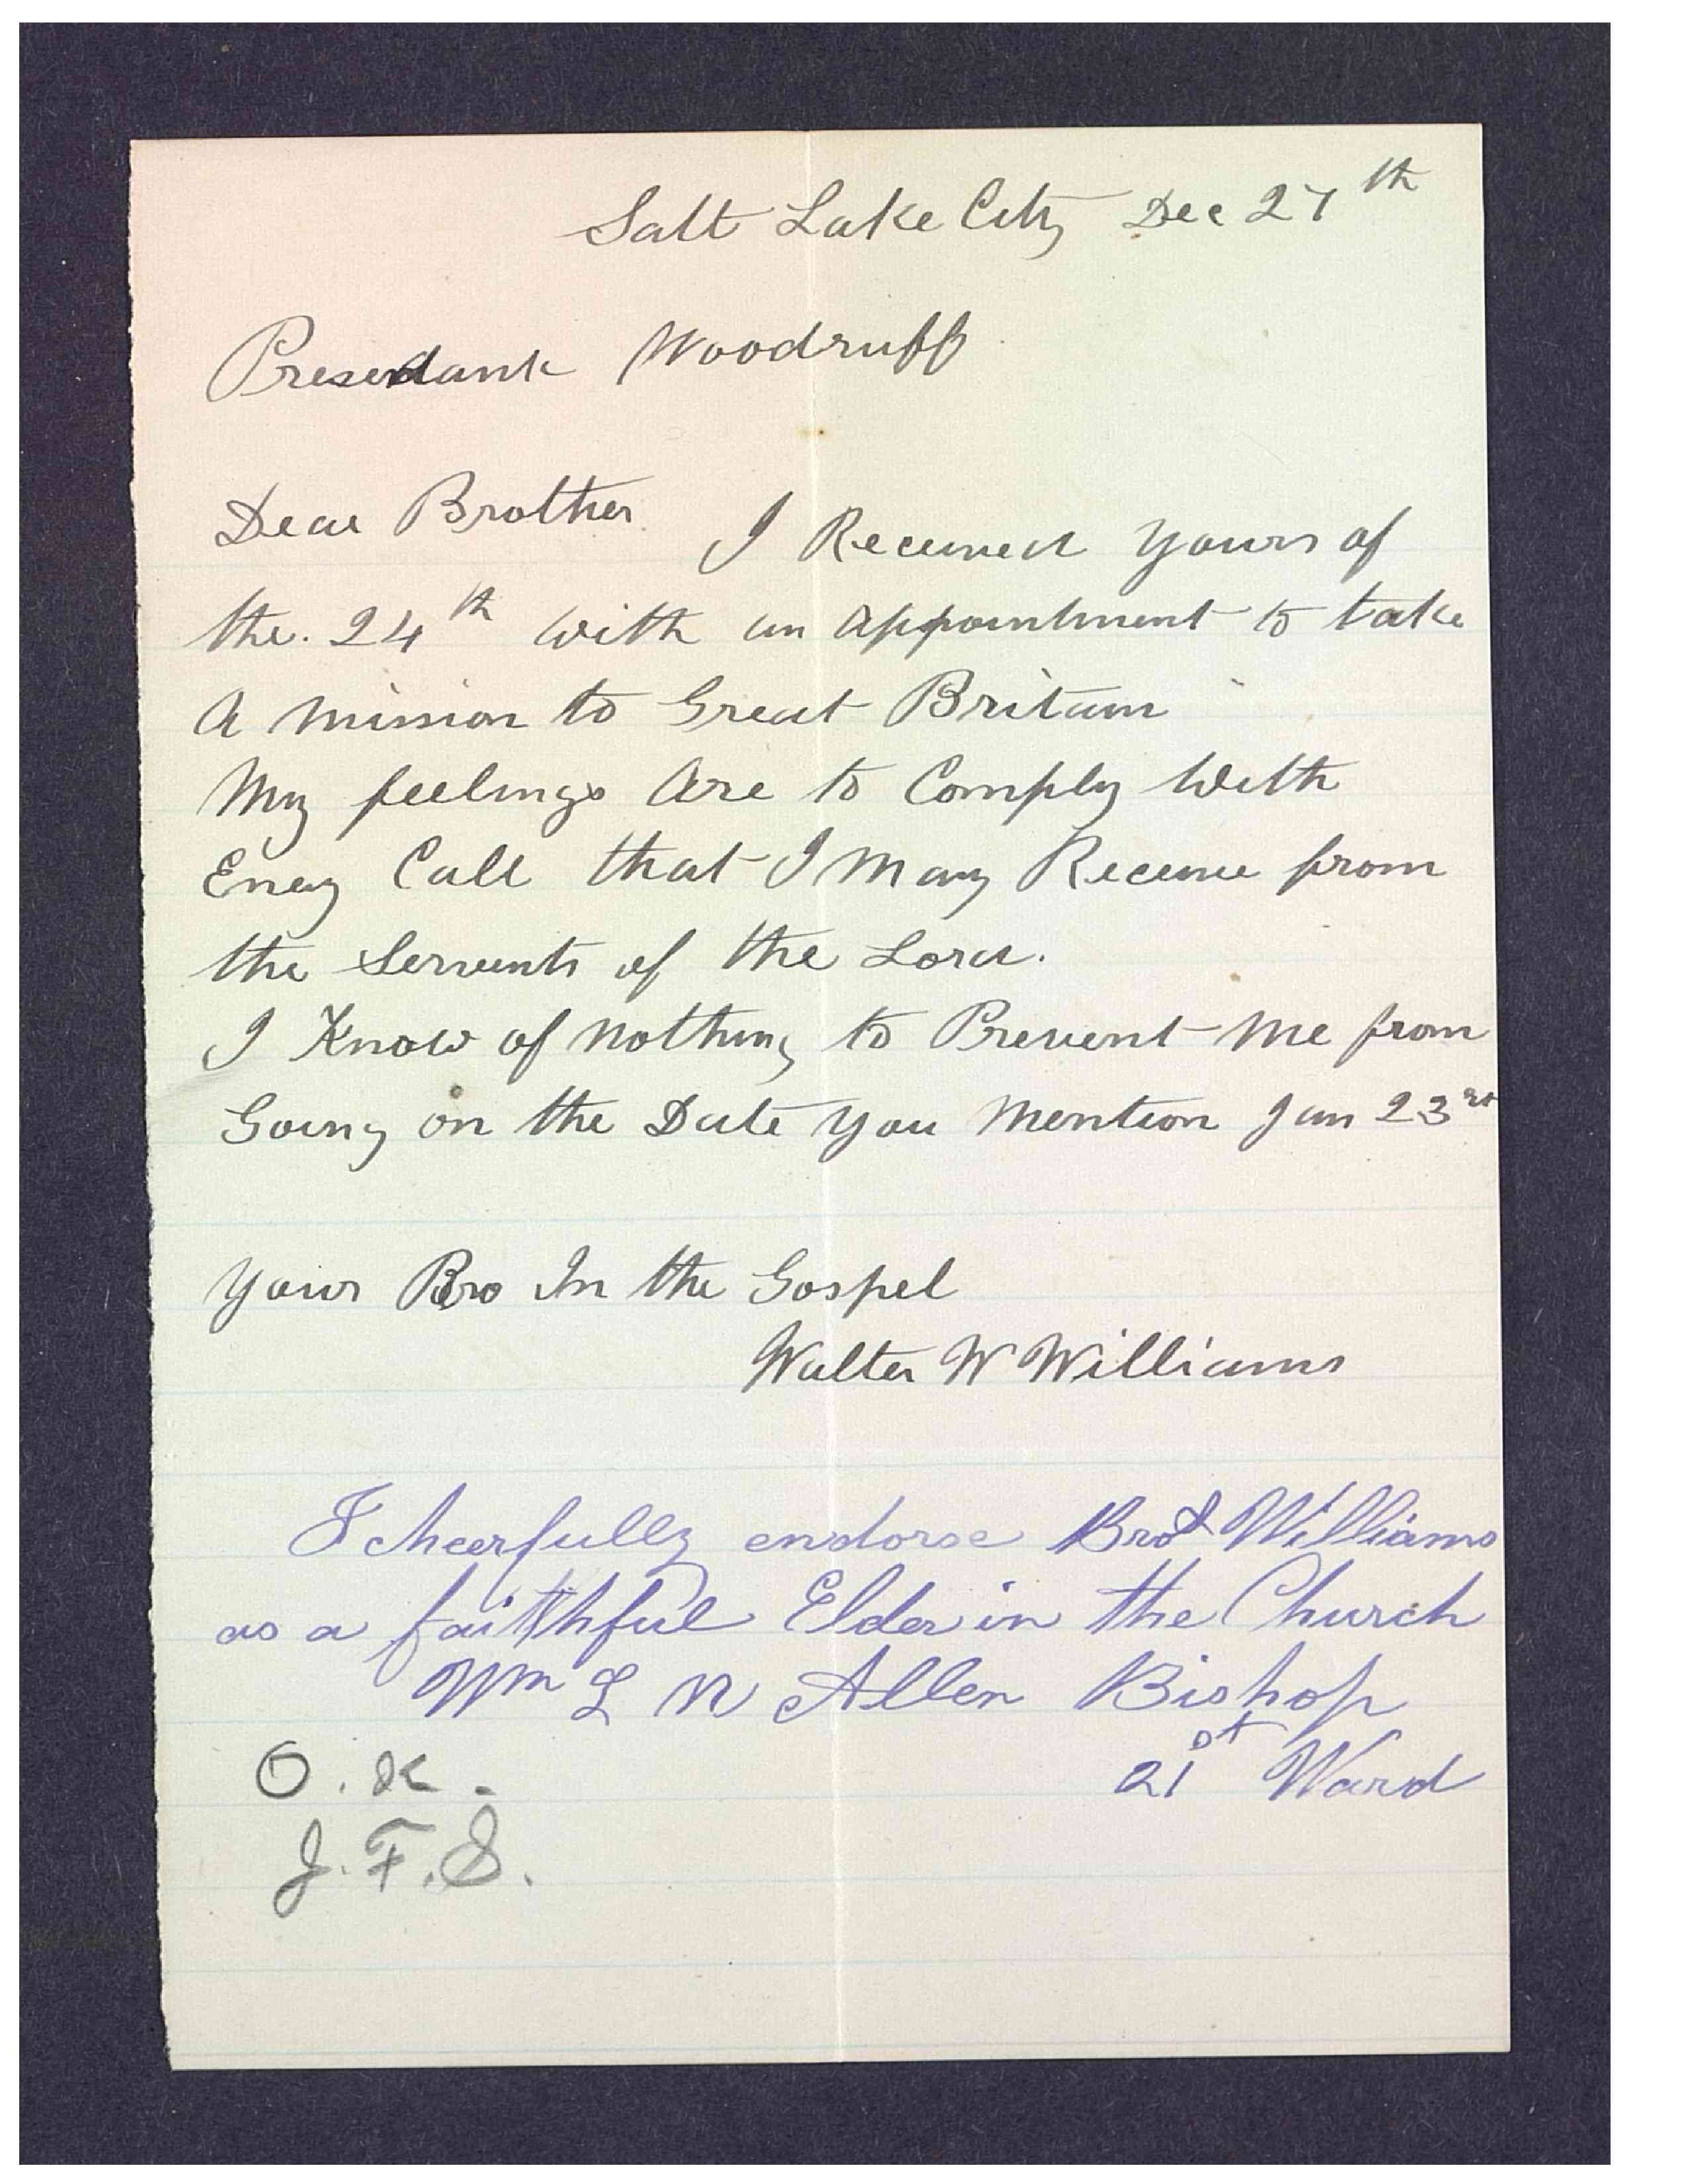 Salt Lake City Dec 27th
Presedant Woodruff
Dear Brother. I Received yours of
the. 24th with an appointment to take
A mission to Great Britain
My feelings Are to Comply With
Eney Call that I May Receive from
the Servents of the Lord.
I Know of nothing to Prevent Me from
Going on the Date you Mention Jan 23rd
Your Bro In the Gospel
Walter W Williams
I cheerfully endorse Bro Williams
as a faithful Elder in the Church
Wm L N Allen Bishop
21st Ward
O. K.
J. F. S.